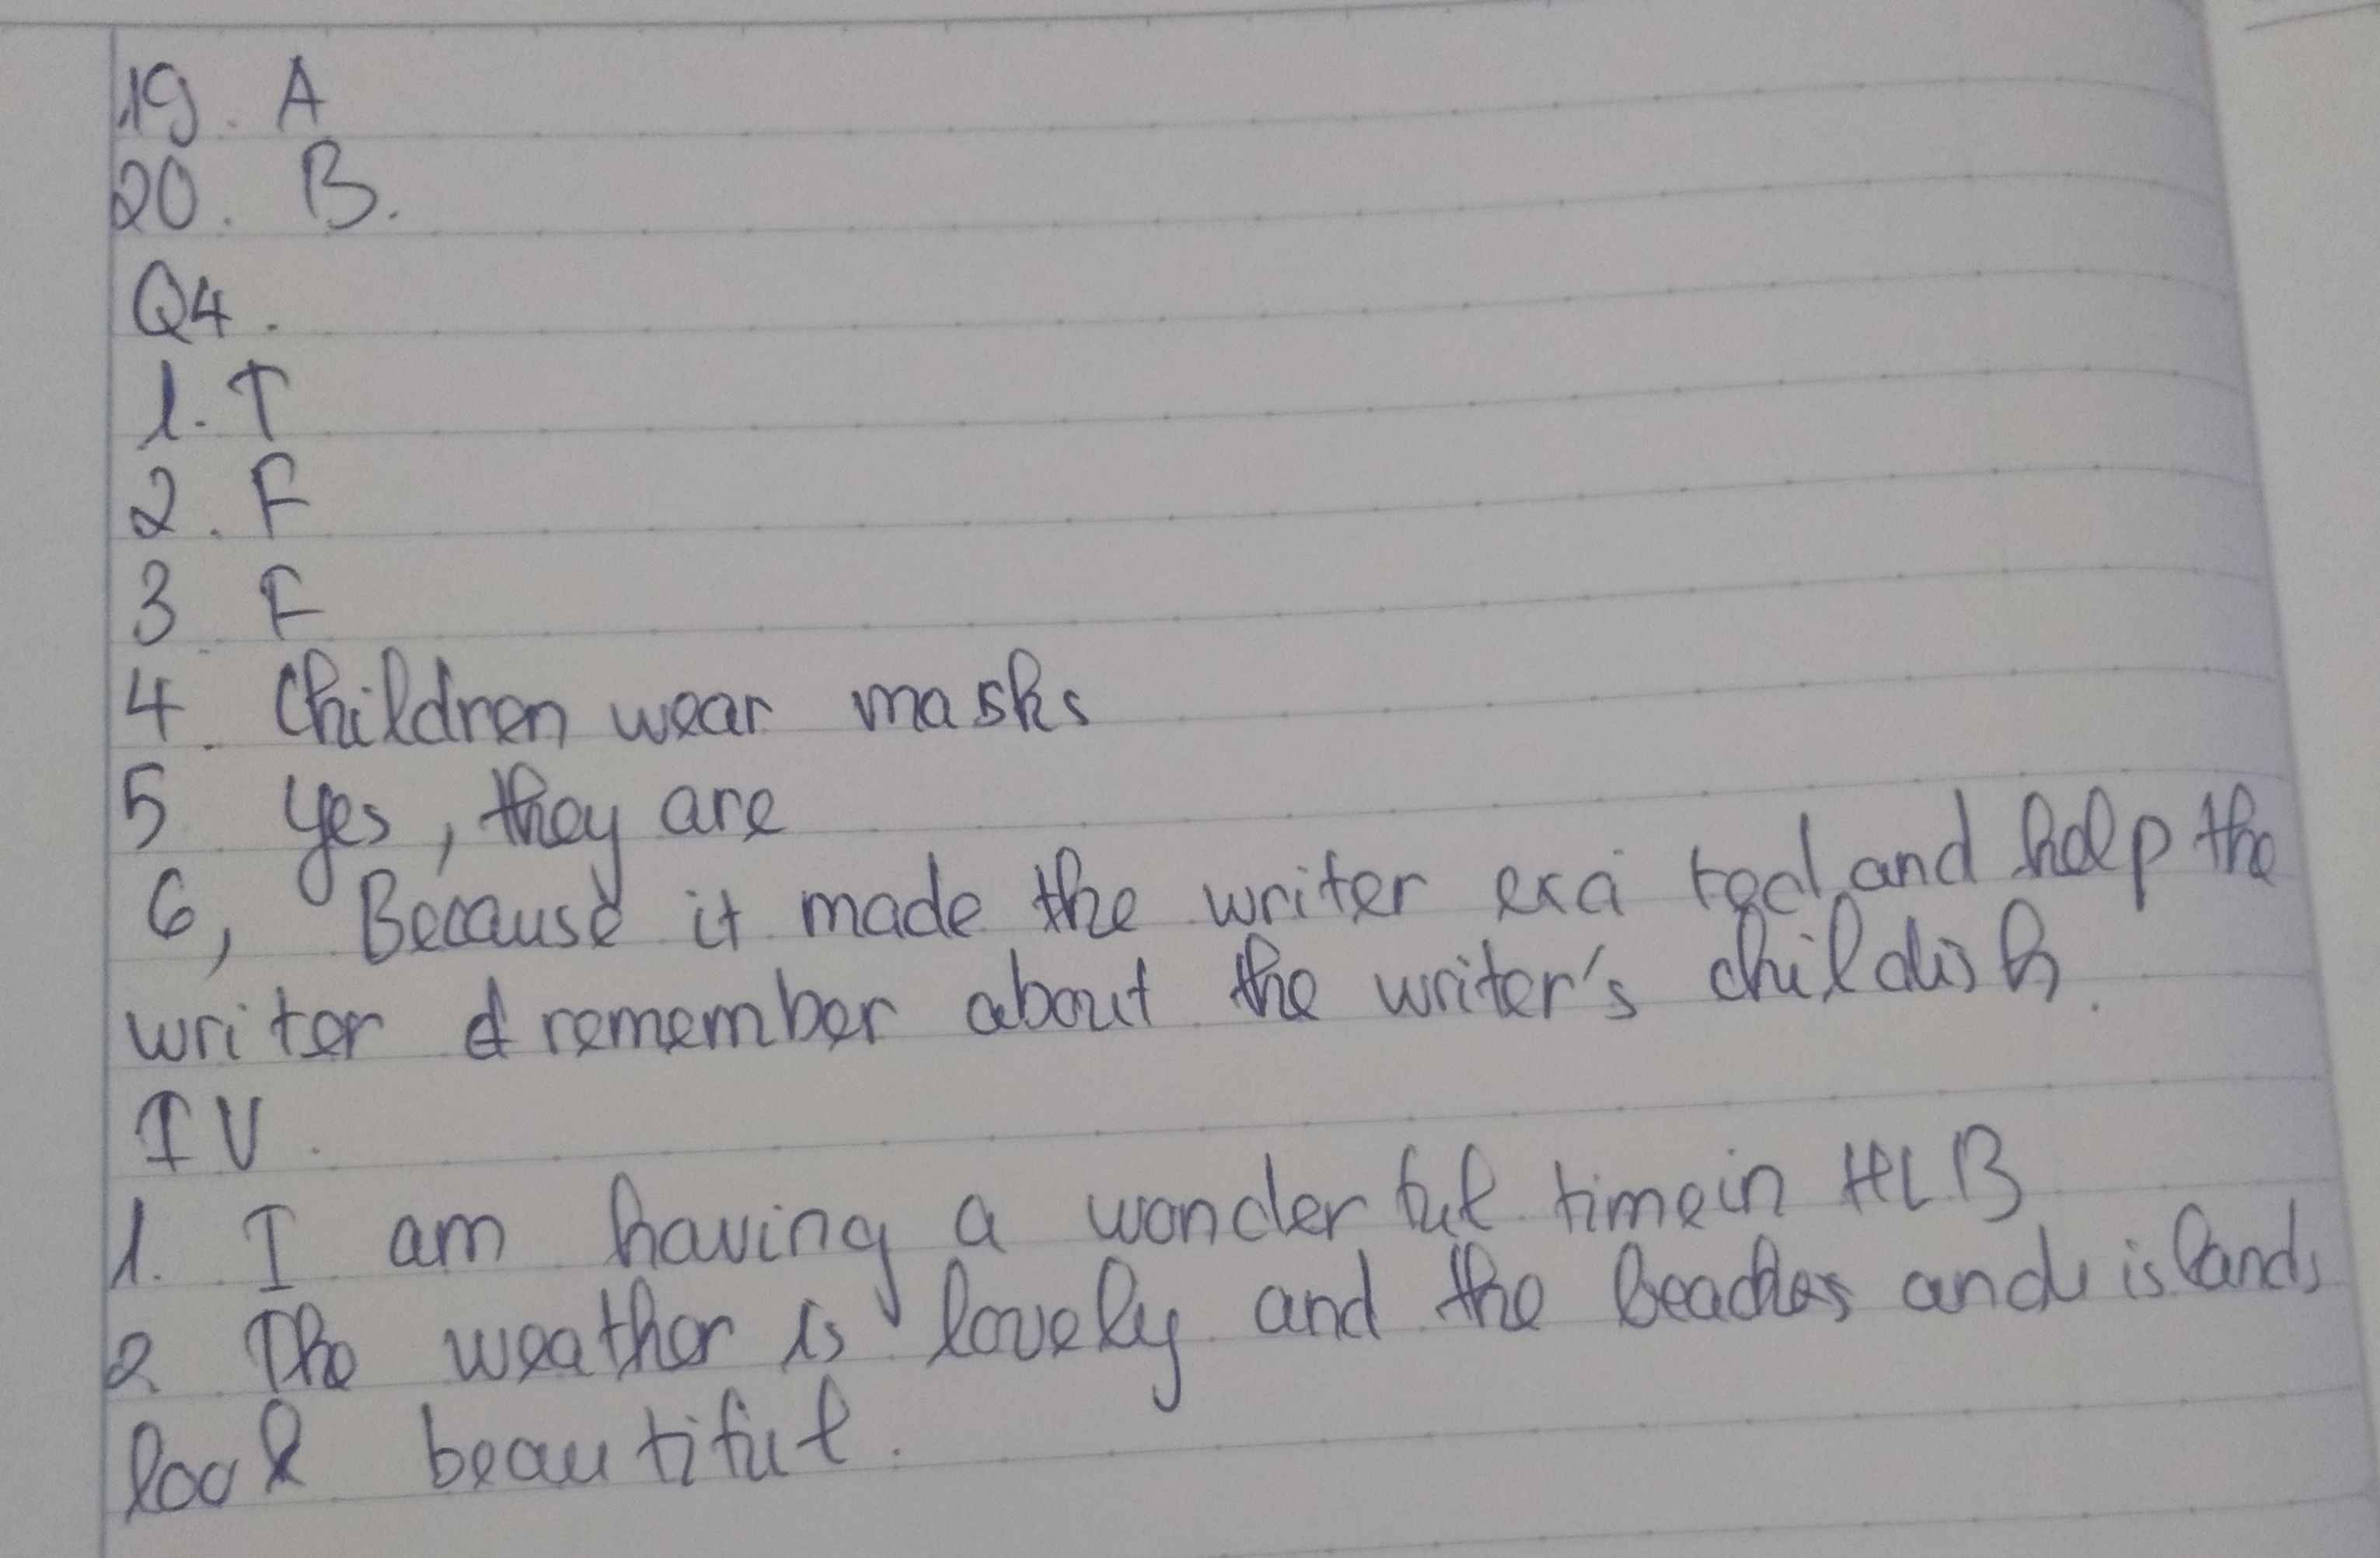 19. A
20. B.
Q4.
1. T
2. F
3. F
4. Children wear masks
5 Yes, they are
6, Because it made the writer exci ted and help the
writer remember about the writer's childish.
IV.
1. I am having a wonderful time in HLB
2 The weather is lovely and the beaches and islands
look beautiful.